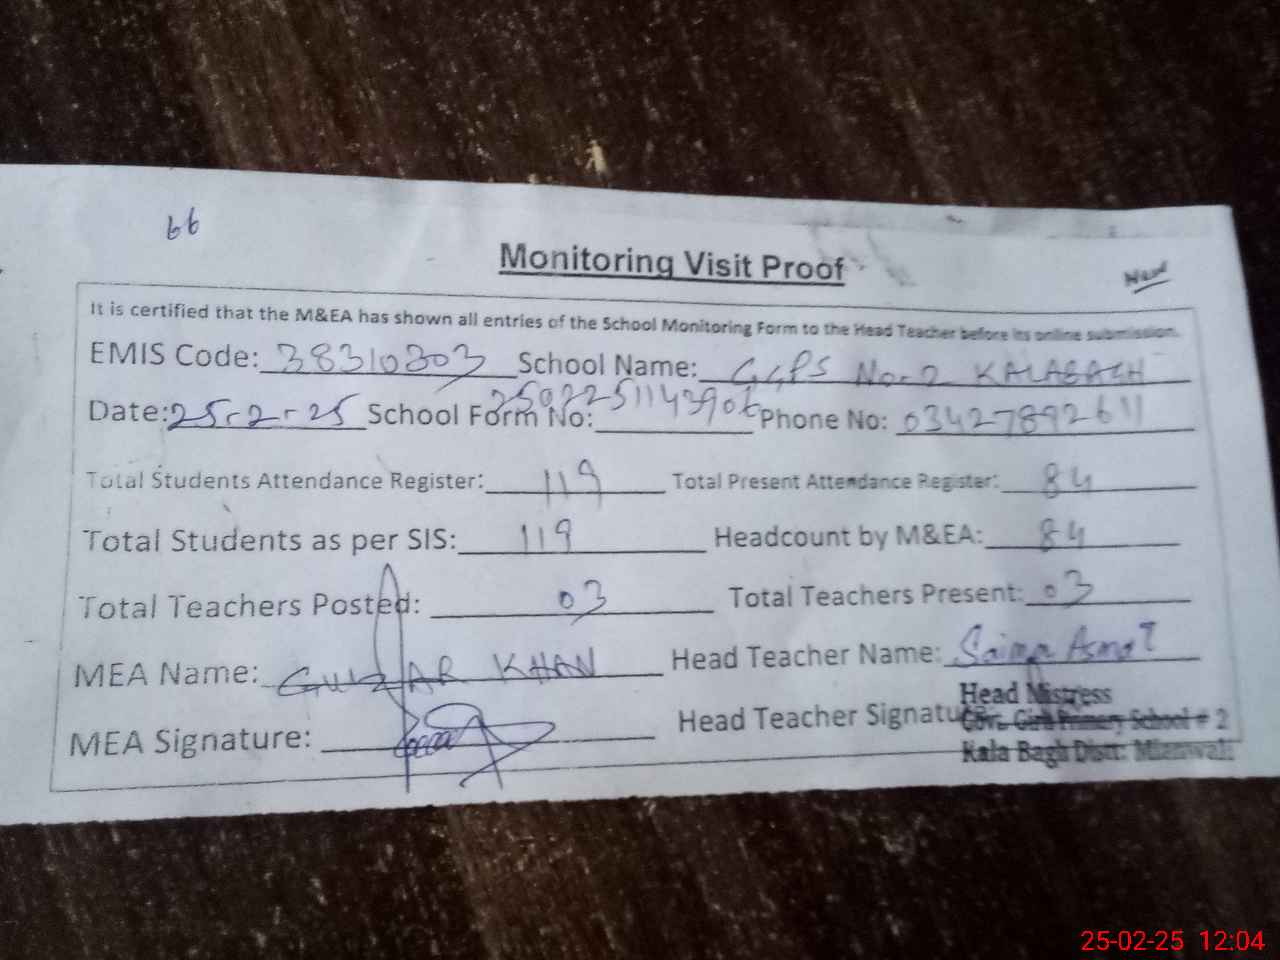 66
Monitoring Visit Proof
Head
It is certified that the M&EA has shown all entries of the School Monitoring Form to the Head Teacher before its online submission.
EMIS Code: 38310303 School Name: GGPS No-2 KALABAGH
Date: 25-2-25 School Form No: Phone No: 03427892611
Total Students Attendance Register: 119 Total Present Attendance Register: 84
Total Students as per SIS: 119 Headcount by M&EA: 84
Total Teachers Posted: 03 Total Teachers Present: 03
MEA Name: GULZAR KHAN Head Teacher Name: Saima Asmat
MEA Signature: Head Teacher Signature
Head Mistress
Govt. Girls Primary School # 2
Kala Bagh Distt: Mianwali
25-02-25 12:04